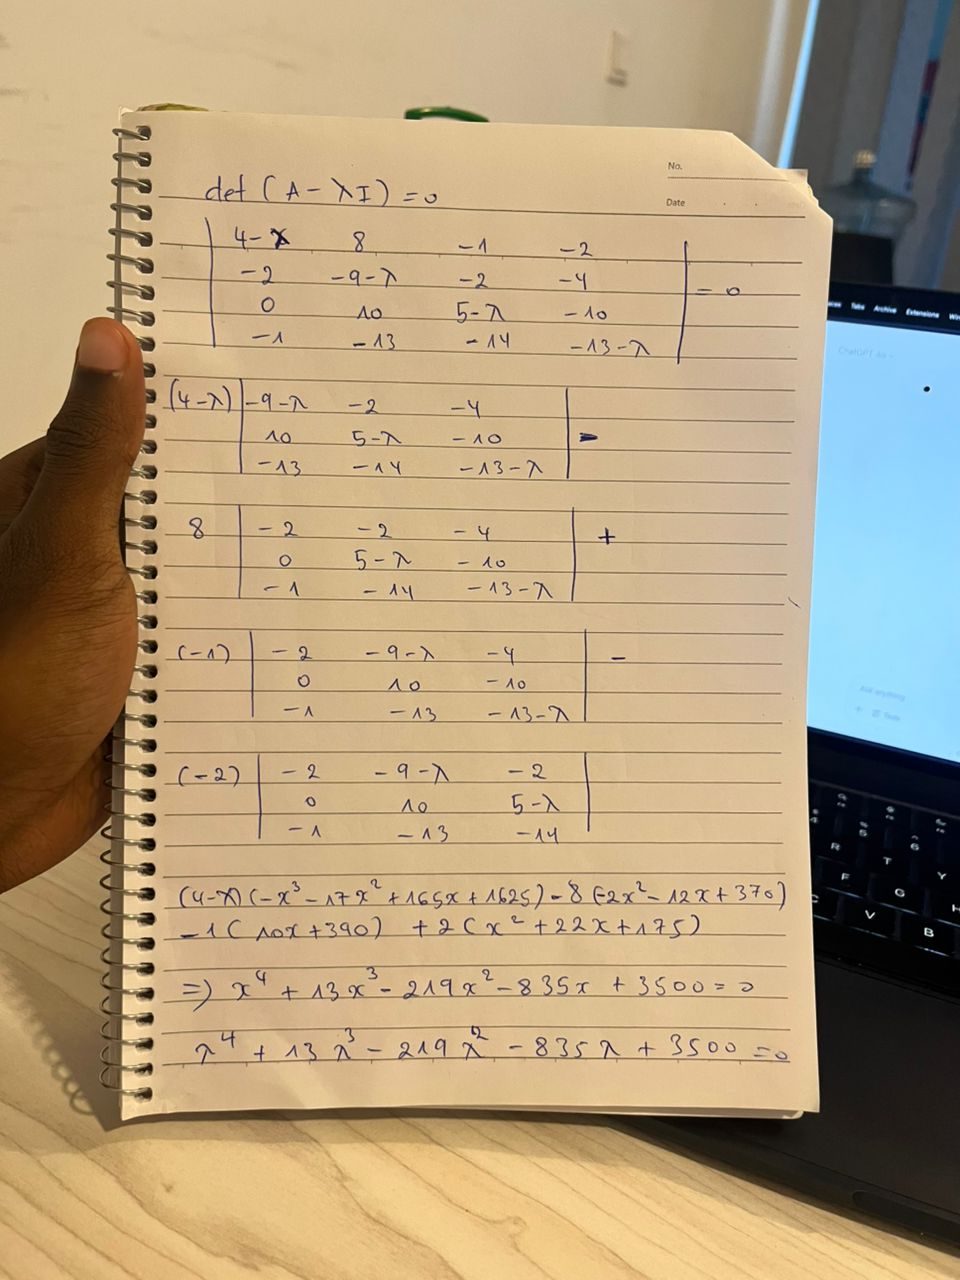 No.
Date
det (A - λI) = 0
4-λ 8 -1 -2
-2 -9-λ -2 -4 = 0
0 10 5-λ -10
-1 -13 -14 -13-λ
(4-λ) -9-λ -2 -4
10 5-λ -10 -
-13 -14 -13-λ
8 -2 -2 -4 +
0 5-λ -10
-1 -14 -13-λ
(-1) -2 -9-λ -4 -
0 10 -10
-1 -13 -13-λ
(-2) -2 -9-λ -2
0 10 5-λ
-1 -13 -14
(4-x)(-x³-17x²+165x+1625)-8(-2x²-12x+370)
-1(10x+390) +2(x²+22x+175)
=> x⁴ + 13x³ - 219x² - 835x + 3500 = 0
λ⁴ + 13λ³ - 219λ² - 835λ + 3500 = 0
Tabs Archive Extensions
ChatGPT
Ask anything
Tools
R T Y
F G H
C V B